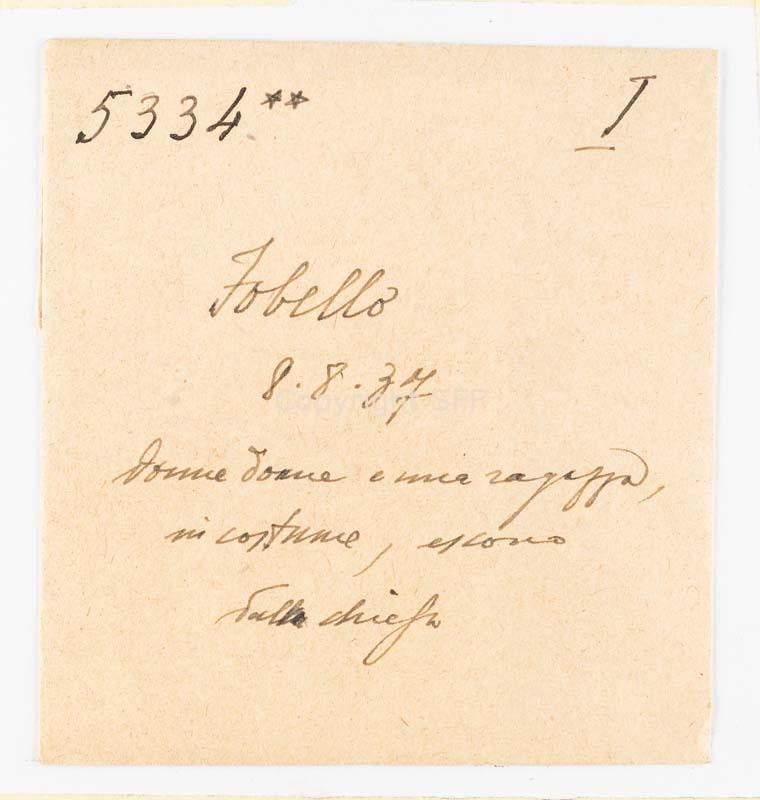 5334** I
Fobello
8.8.37
Donne donne e una ragazza,
in costume, escono
dalla chiesa
Copyright SFF